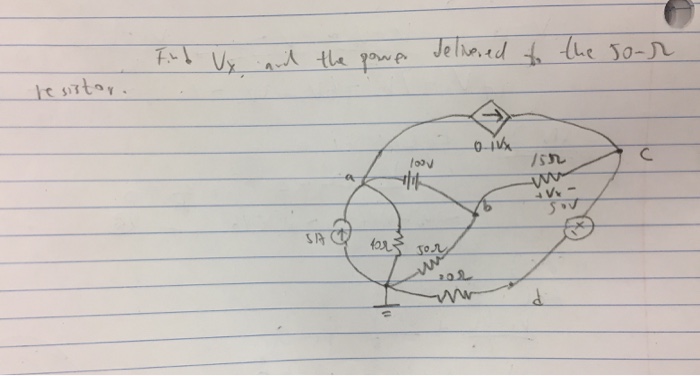 Find Vx, and the power delivered to the 50-Ω
resistor.
0.1Vx
C
a
100V
15Ω
+ Vx -
50V
b
5A
10Ω
50Ω
20Ω
d